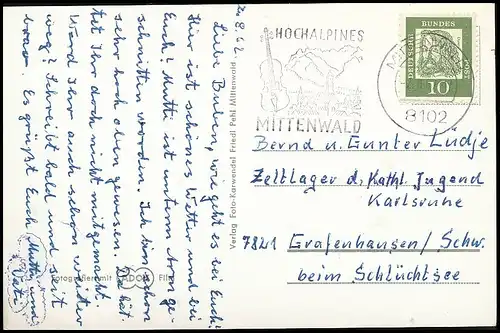 2.8.62.
Liebe Buben, wie geht es bei Euch!
Hier ist schönes Wetter und bei
Euch? Mutti ist unterm Arm ge-
schnitten worden. Ich bin schon
sehr hoch oben gewesen. Da hät-
tet Ihr doch nicht mitgemacht.
Ward Ihr auch schon weiter
weg? Schreibt bald und seit
brav. Es grüßt Euch
Mutti und
Vati
Verlag Foto-Karwendel Friedl Pehl Mittenwald
Fotografiere mit ADOX Film
HOCHALPINES
MITTENWALD
8102
DEUTSCHE
BUNDES
POST
10
Bernd u. Gunter Lüdje
Zeltlager d. Kathl. Jugend
Karlsruhe
7821 Grafenhausen/Schw.
beim Schlüchtsee